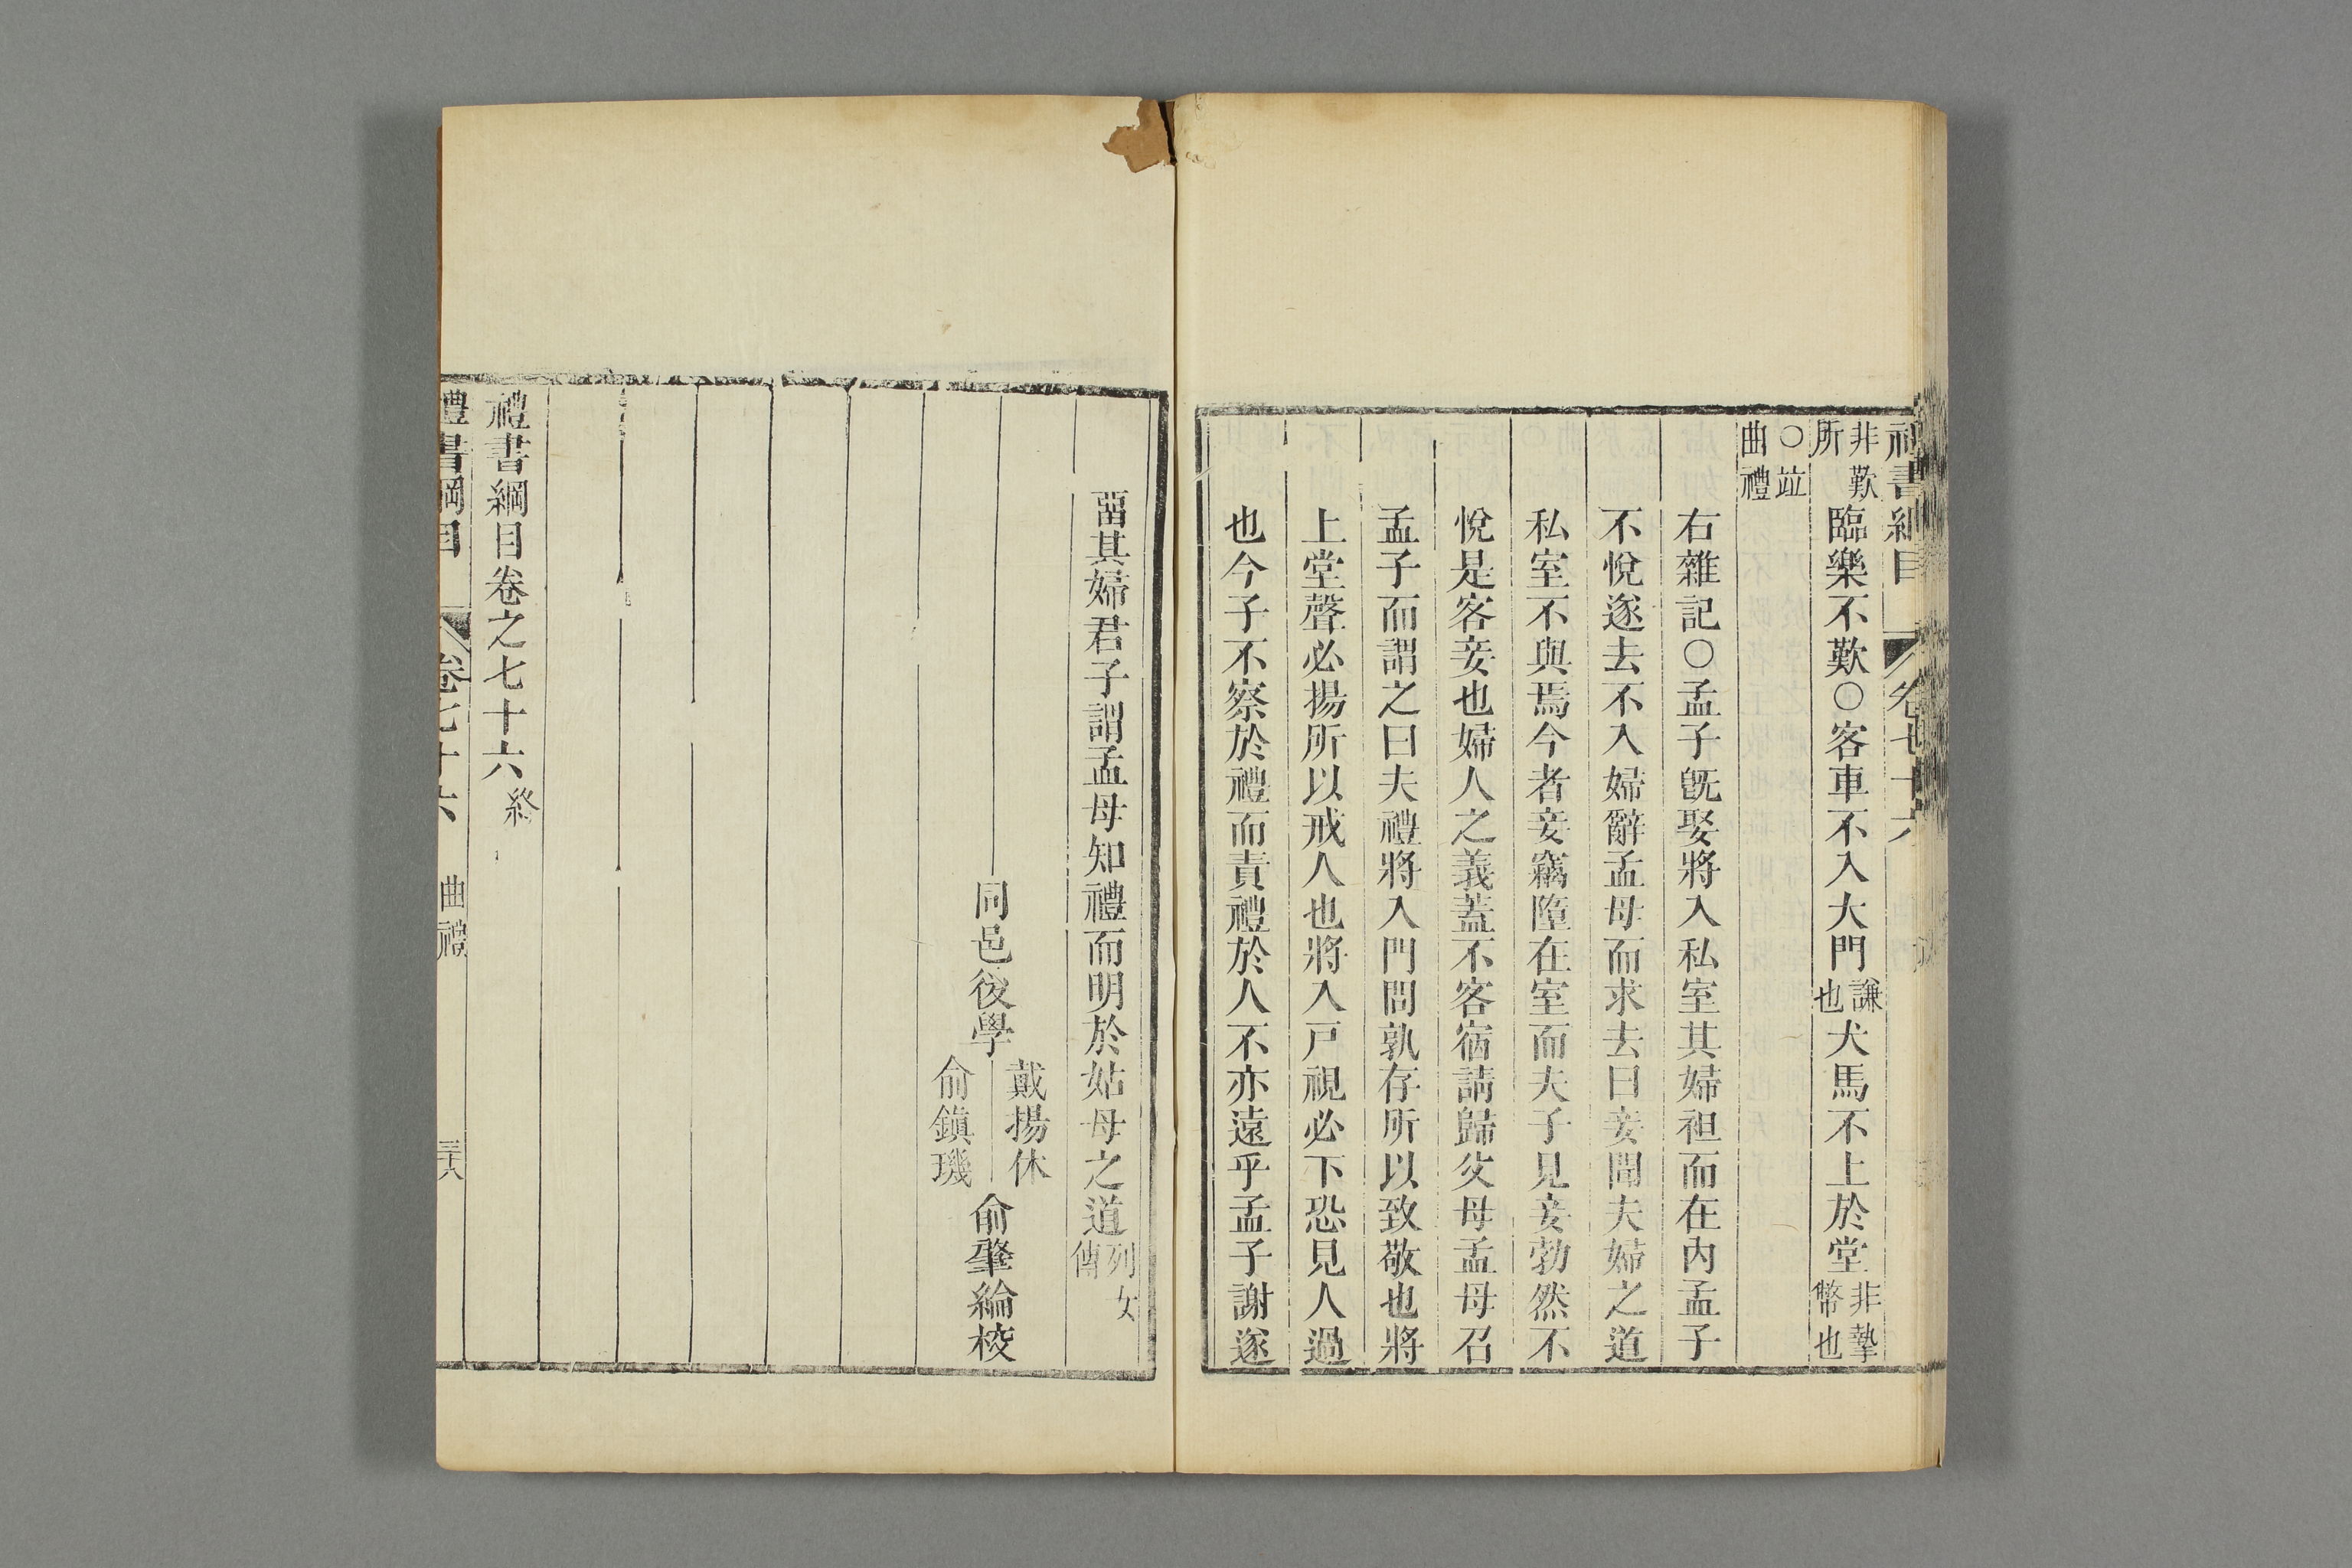 禮書綱目 卷七十六
非歎所臨樂不歎〇客車不入大門謙也犬馬不上於堂非摯幣也
〇竝曲禮
右雜記〇孟子既娶將入私室其婦袒而在內孟子
不悅遂去不入婦辭孟母而求去曰妾聞夫婦之道
私室不與焉今者妾竊墮在室而夫子見妾勃然不
悅是客妾也婦人之義蓋不客宿請歸父母孟母召
孟子而謂之曰夫禮將入門問孰存所以致敬也將
上堂聲必揚所以戒人也將入戸視必下恐見人過
也今子不察於禮而責禮於人不亦遠乎孟子謝遂
畱其婦君子謂孟母知禮而明於姑母之道列女傳
同邑後學戴揚休俞鎮璣俞肇綸校
禮書綱目卷之七十六終
禮書綱目 卷七十六 曲禮 三十六